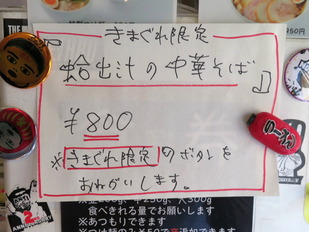 きまぐれ限定
蛤出汁の中華そば
¥800
※きまぐれ限定のボタンを
おねがいします。
食べきれる量でお願いします
※あつもりできます